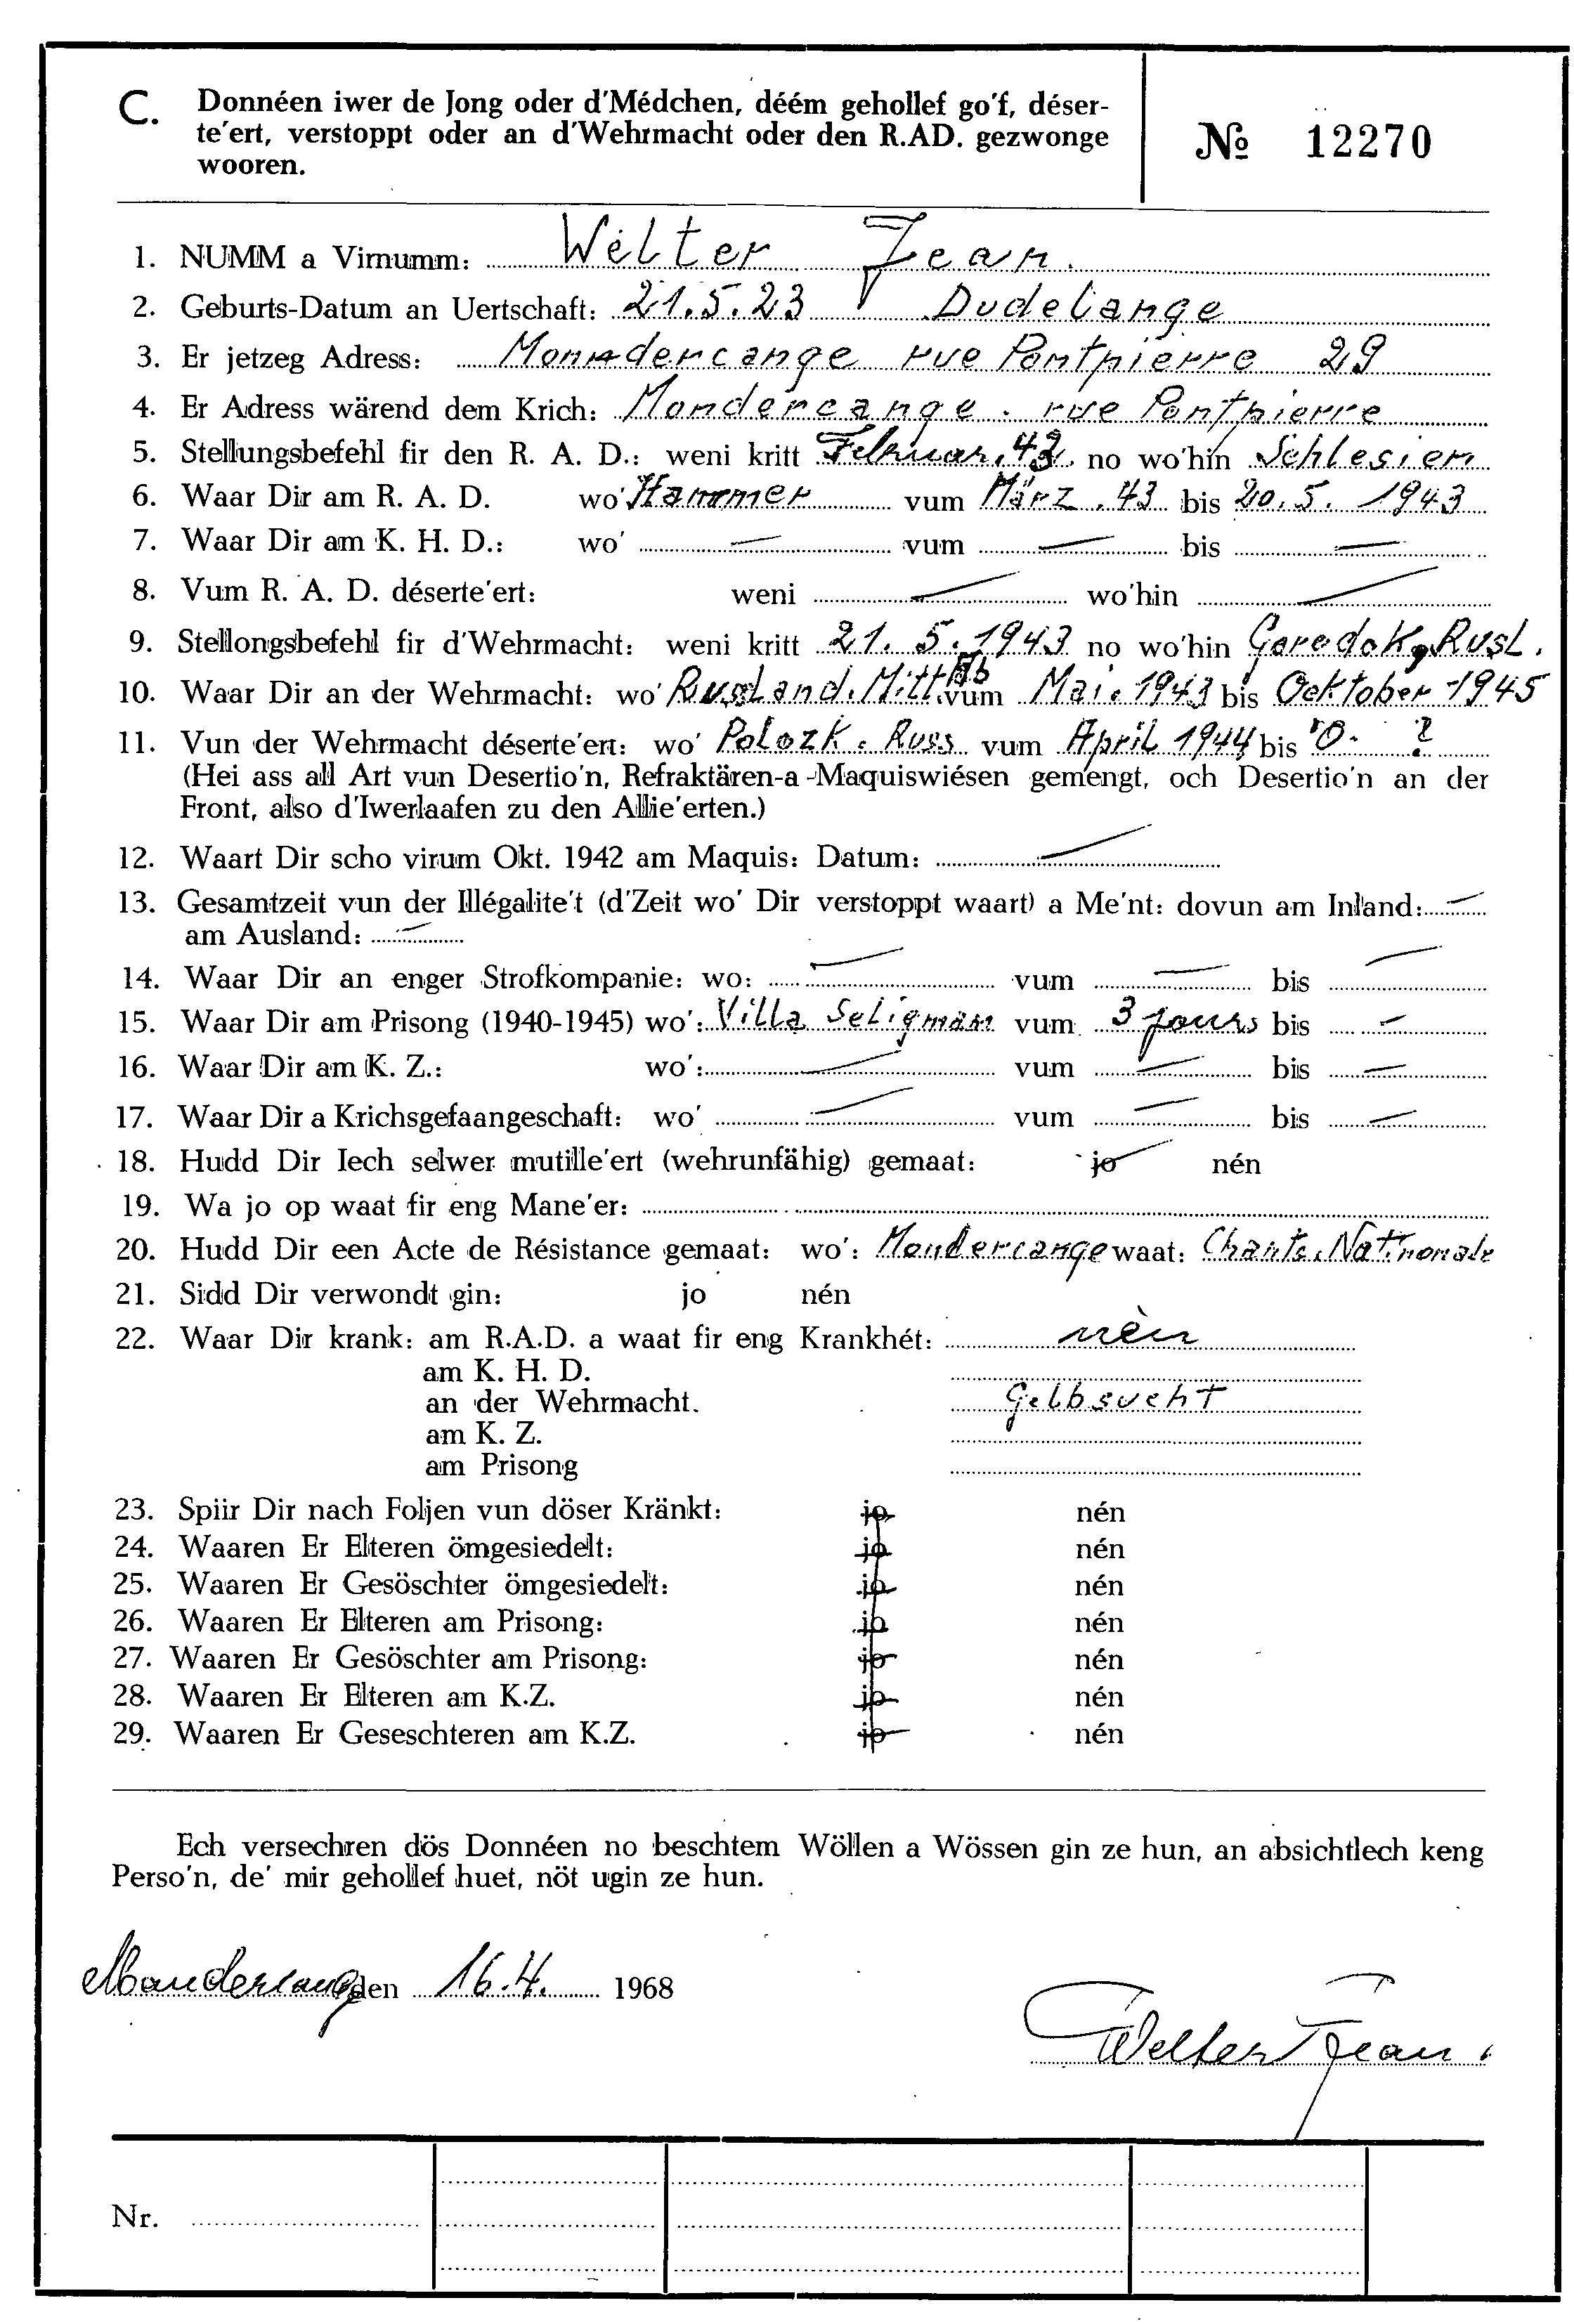 C. Donnéen iwer de Jong oder d'Médchen, déém gehollef go'f, déser-
te'ert, verstoppt oder an d'Wehrmacht oder den R.AD. gezwonge
wooren.
№ 12270
1. NUMM a Virnumm: Welter Jean.
2. Geburts-Datum an Uertschaft: 21.5.23 Dudelange
3. Er jetzeg Adress: Mondercange rue Pontpierre 29
4. Er Adress wärend dem Krich: Mondercange. rue Pontpierre
5. Stellungsbefehl fir den R. A. D.: weni kritt Februar. 43. no wo'hin Schlesien
6. Waar Dir am R. A. D. wo' Hammer vum März. 43 bis 20.5. 1943
7. Waar Dir am K. H. D.: wo' — vum — bis —
8. Vum R. A. D. déserte'ert: weni — wo'hin —
9. Stellongsbefehl fir d'Wehrmacht: weni kritt 21. 5. 1943 no wo'hin Goredok, Rusl.
10. Waar Dir an der Wehrmacht: wo' Russland. Mitt. Ab vum Mai. 1943 bis Ocktober 1945
11. Vun der Wehrmacht déserte'ert: wo' Polozk. Russ vum April 1944 bis ?
(Hei ass all Art vun Desertio'n, Refraktären-a-Maquiswiésen gemengt, och Desertio'n an der
Front, also d'Iwerlaafen zu den Allie'erten.)
12. Waart Dir scho virum Okt. 1942 am Maquis: Datum: —
13. Gesamtzeit vun der Illégalite't (d'Zeit wo' Dir verstoppt waart) a Me'nt: dovun am Inland: —
am Ausland: —
14. Waar Dir an enger Strofkompanie: wo: — vum — bis —
15. Waar Dir am Prisong (1940-1945) wo': Villa Seligman vum 3 jours bis —
16. Waar Dir am K. Z.: wo': — vum — bis —
17. Waar Dir a Krichsgefaangeschaft: wo' — vum — bis —
18. Hudd Dir Iech selwer mutille'ert (wehrunfähig) gemaat: jo nén
19. Wa jo op waat fir eng Mane'er:
20. Hudd Dir een Acte de Résistance gemaat: wo': Mondercange waat: Chants. Nationale
21. Sidd Dir verwondt gin: jo nén
22. Waar Dir krank: am R.A.D. a waat fir eng Krankhét: nèn
am K. H. D.
an der Wehrmacht. Gelbsucht
am K. Z.
am Prisong
23. Spiir Dir nach Foljen vun döser Kränkt: jo nén
24. Waaren Er Elteren ömgesiedelt: jo nén
25. Waaren Er Gesöschter ömgesiedelt: jo nén
26. Waaren Er Elteren am Prisong: jo nén
27. Waaren Er Gesöschter am Prisong: jo nén
28. Waaren Er Elteren am K.Z. jo nén
29. Waaren Er Geseschteren am K.Z. jo nén
Ech versechren dös Donnéen no beschtem Wöllen a Wössen gin ze hun, an absichtlech keng
Perso'n, de' mir gehollef huet, nöt ugin ze hun.
Mondercange den 16.4. 1968
Welter Jean.
Nr.